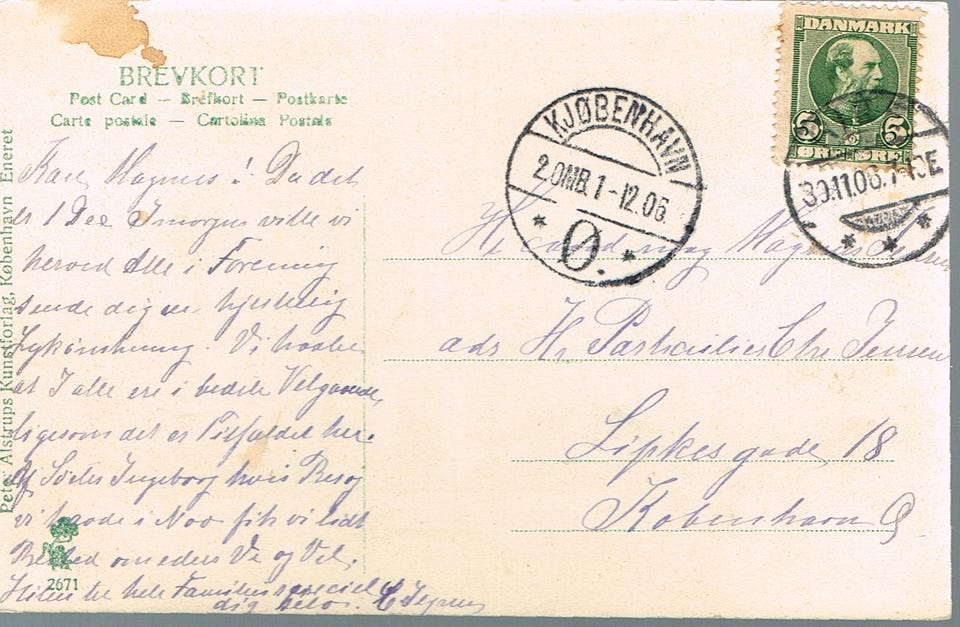 BREVKORT
Post Card — Brefkort — Postkarte
Carte postale — Cartolina Postale
Peter Alstrups Kunstforlag, København Eneret
Kære Magnus! Da det
er 1 Dec Imorgen vilde vi
herved Alle i Forening
sende dig en hjertelig
Lykønskning. Vi haabe
at I alle ere i bedste Velgaaende,
ligesom det er Tilfældet her.
Af Søster Ingeborg hvis Besøg
vi havde i Nov fik vi lidt
Besked om eders Ve og Vel.
Hilsen til hele Familien speciel
dig selv.
2671
DANMARK
5 5
ØRE ØRE
KJØBENHAVN
2.OMB.1-12.06
Ø.
30.11.06.
Magnus
adr Hr Partikulier Chr Jensen
Lipkesgade 18
København Ø